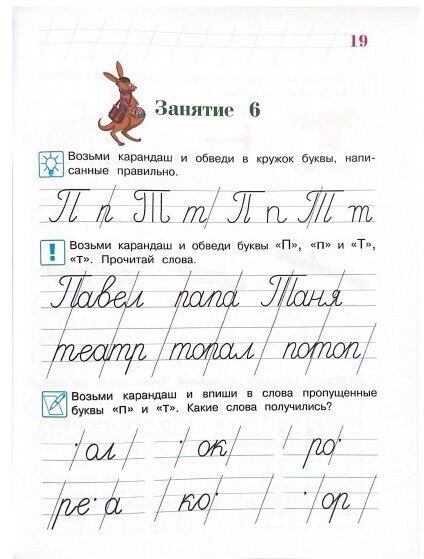 19
Занятие 6
Возьми карандаш и обведи в кружок буквы, напи-
санные правильно.
П п Т т П п Т т
Возьми карандаш и обведи буквы «П», «п» и «Т»,
«т». Прочитай слова.
Павел папа Таня
театр топал потоп
Возьми карандаш и впиши в слова пропущенные
буквы «п» и «т». Какие слова получились?
·ол ·ок ро·
ре·а ко· ·ор